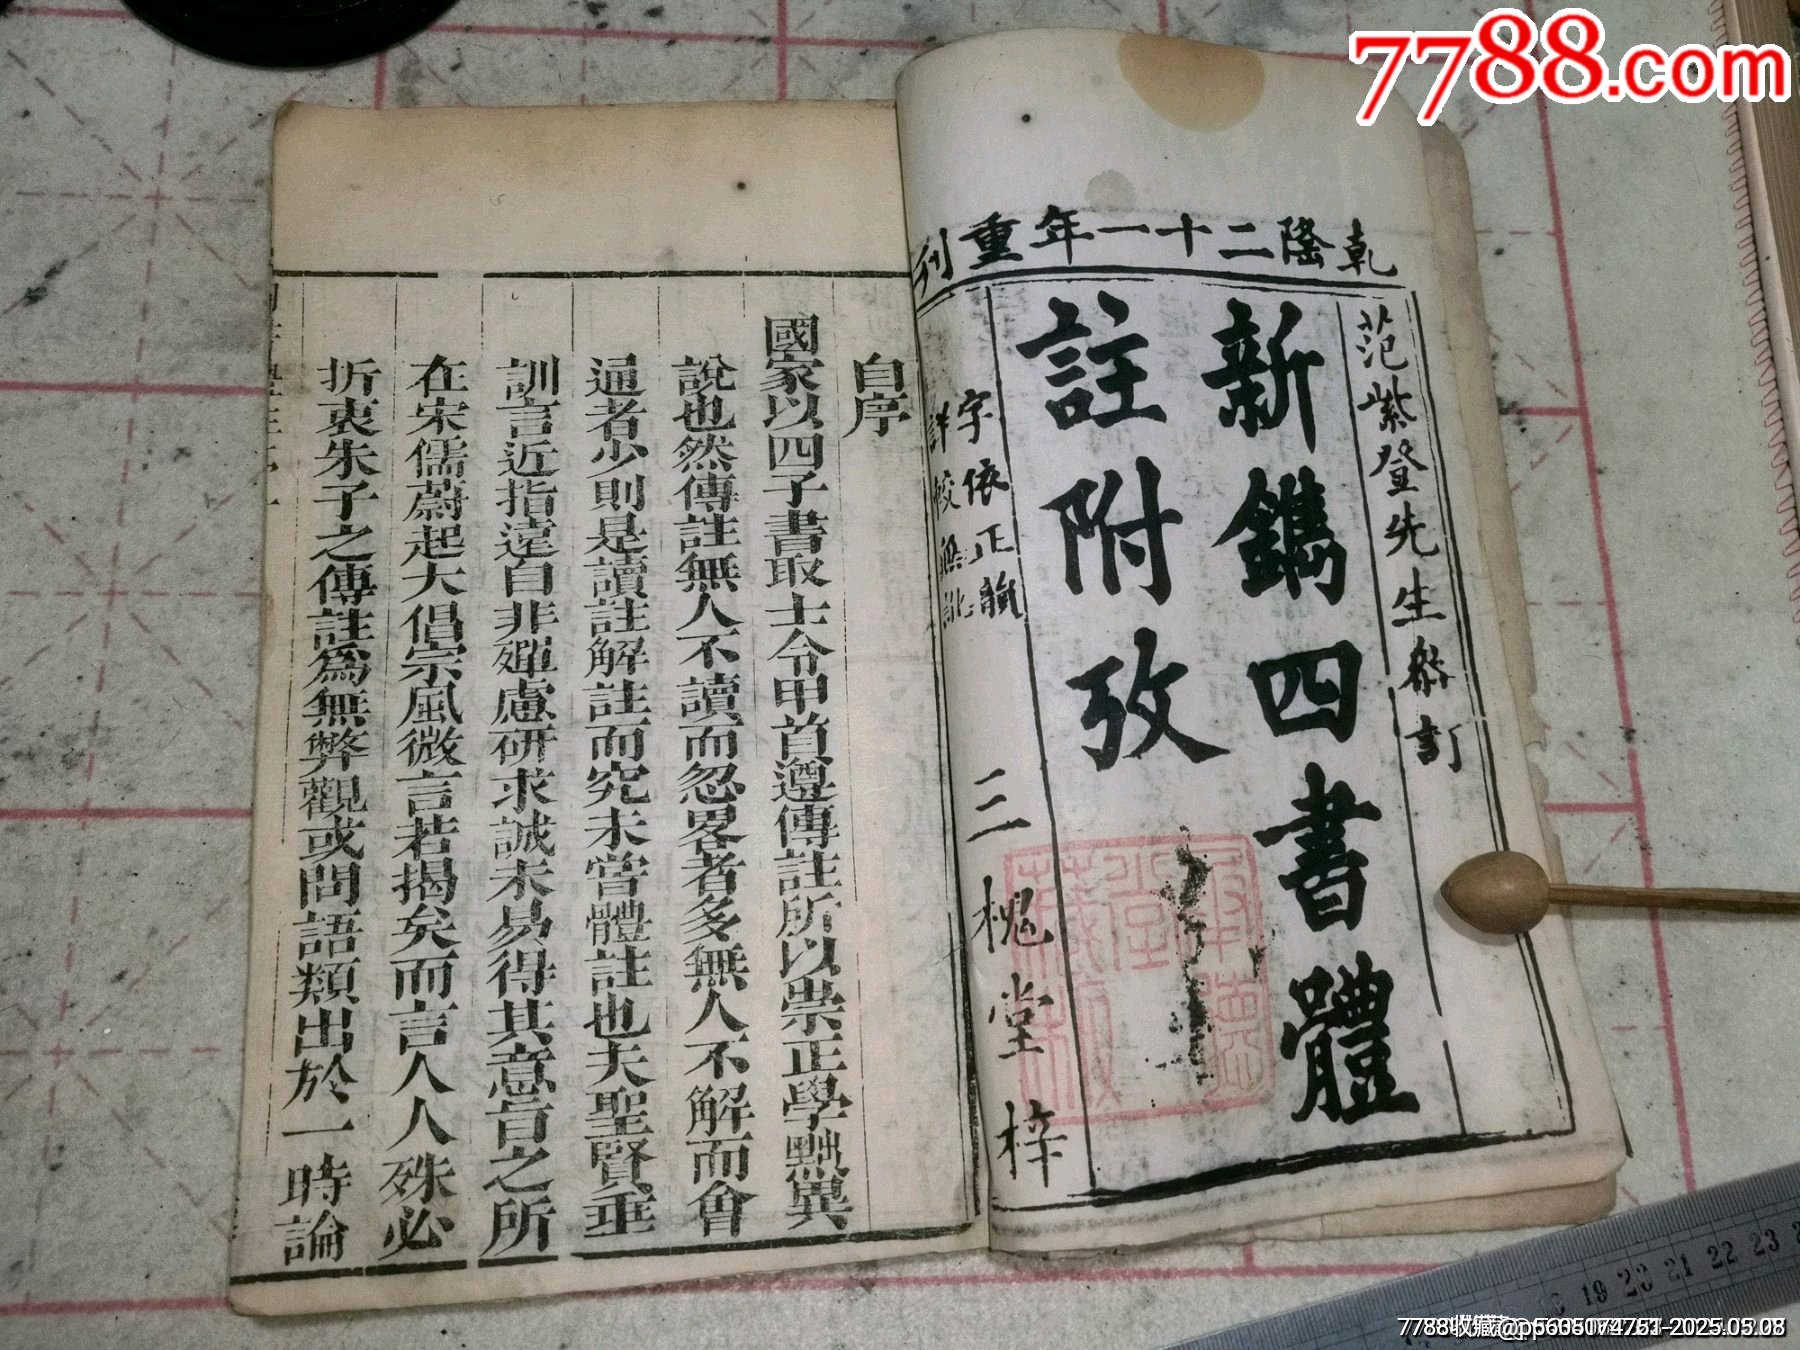 7788.com
乾隆二十一年重刊
范紫登先生叅訂
新鐫四書體
註附攷
字依正韻
詳校無訛
三槐堂梓
自序
國家以四子書取士令甲首遵傳註所以崇正學黜異
說也然傳註無人不讀而忽畧者多無人不解而會
通者少則是讀註解註而究未嘗體註也夫聖賢垂
訓言近指遠自非殫慮研求誠未易得其意旨之所
在宋儒蔚起大倡宗風微言若揭矣而言人人殊必
折衷朱子之傳註為無弊觀或問語類出於一時論
19 20 21 22 23
7788收藏